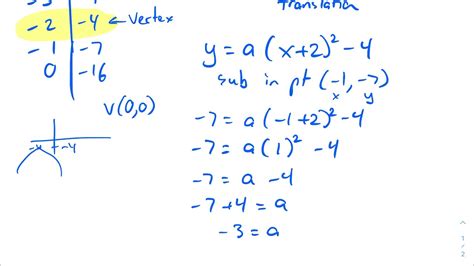 Translation
-2 -4 ← Vertex
-1 -7
0 -16
V(0,0)
-4 -4
y = a(x+2)² - 4
sub in pt (-1, -7)
x y
-7 = a(-1+2)² - 4
-7 = a(1)² - 4
-7 = a - 4
-7+4 = a
-3 = a
1/2